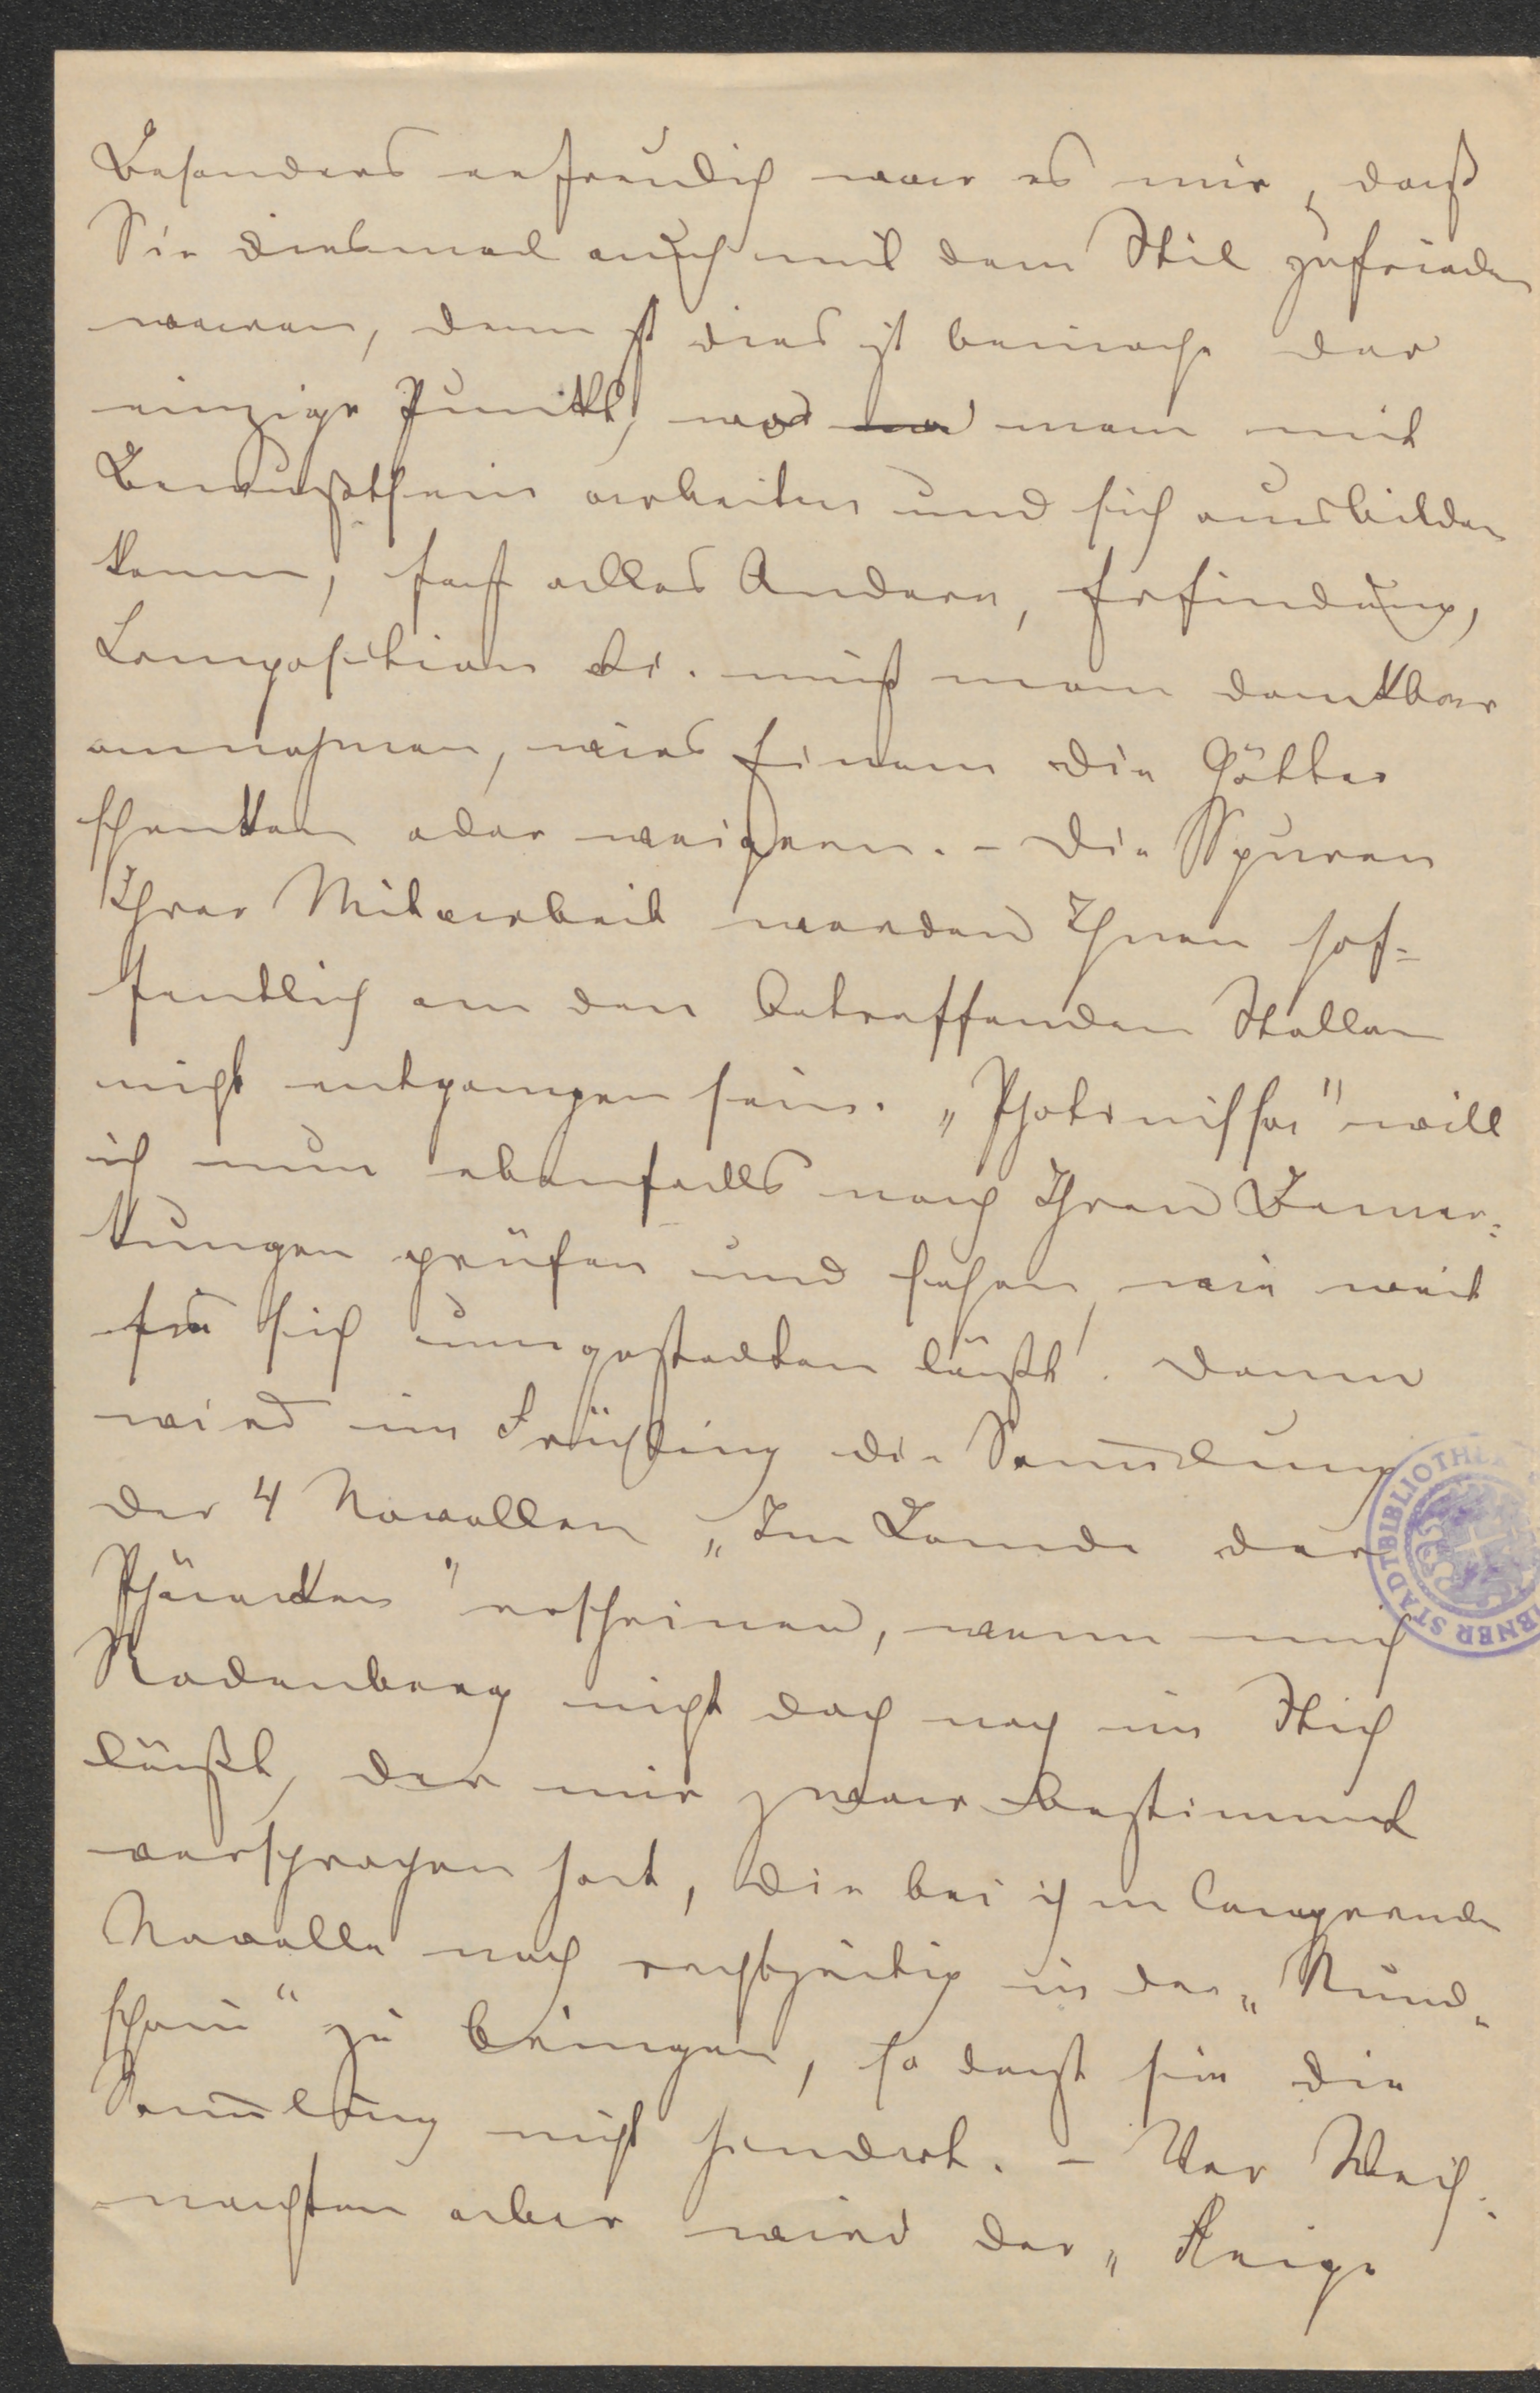 Besonders erfreulich war es mir, daß
Sie diesmal auch mit dem Stil zufrieden
waren, denn dies ist beinahe der
einzige Punkt, wo man mit
Bewußtsein arbeiten und sich ausbilden
kann, fast alles Andere, Erfindung,
Composition etc. muß man dankbar
annehmen, wies Einem die Götter
schenken oder weigern. – Die Spuren
Ihrer Mitarbeit werden Ihnen hof-
fentlich an den betreffenden Stellen
nicht entgangen sein. „Photinissa" will
ich nun ebenfalls nach Ihren Bemer-
kungen prüfen und sehen, wie weit
sie sich umgestalten läßt. Dann
wird im Frühling die Sam̄lung
der 4 Novellen „Im Lande der
Phäaken" erscheinen, wenn mich
Rodenberg nicht doch noch im Stich
läßt, der mir zwar bestimmt
versprochen hat, die bei ihm lagernde
Novelle noch rechtzeitig in der „Rund-
schau" zu bringen, so daß sie die
Sam̄lung nicht hindert. – Vor Weih-
nachten aber wird der „Reige
STADTBIBLIOTHE